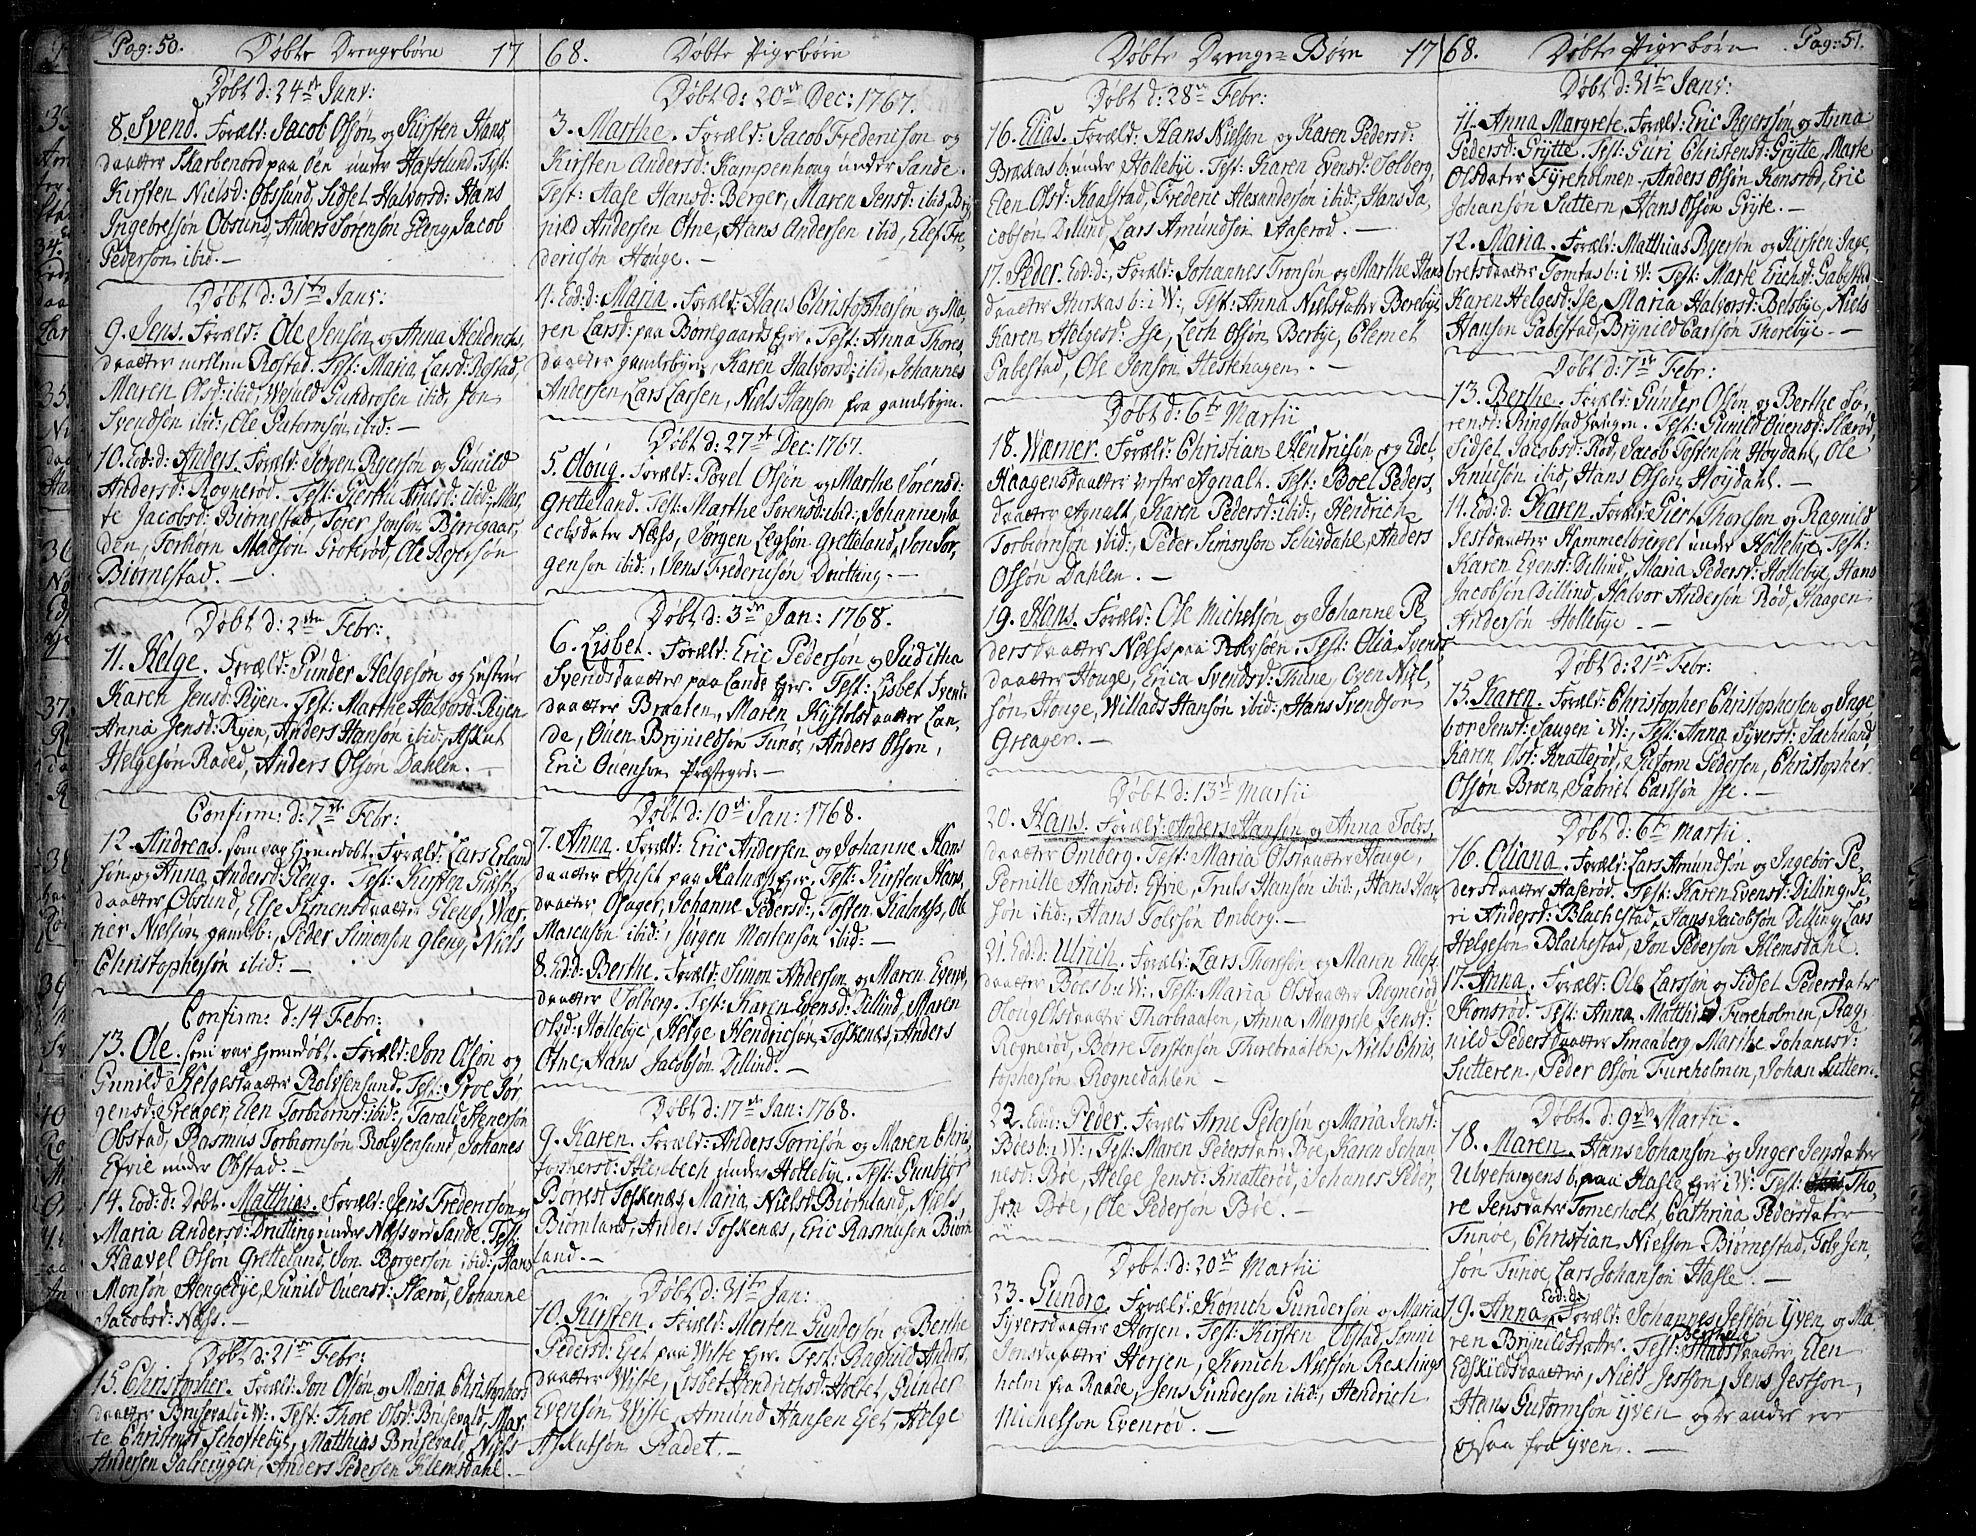 Pag: 50. Døbte Drengebørn 17
Døbt d: 24de Janv:
8. Svend. Foræld: Jacob Olsøn og Kirsten Hans
daatter Skarbenord paa øen under Hafslund. Test:
Kirsten Nielsd: Obsund, Sidsel Halvorsd: Hans
Ingebretsøn Obsund, Anders Sørensøn Gleng, Jacob
Pedersøn ibid. —
Døbt d: 31te Janv:
9. Jens. Foræld: Ole Jensøn og Anna Hendrichs
daatter mellem Rostad. Test: Maria Larsd: Rostad,
Maren Olsd: ibid, Gundrosen ibid, Jon
Svendsøn ibid:, Ole Gutormsøn ibid: —
10. Eod: d: Anders. Foræld: Jørgen Ryersøn og Gunild
Andersd: Rognerød. Test: Giertru Arnesd: ibid: Mar,
te Jacobsd: Biørnestad, Torer Jonsøn Biørregaar,
den, Torbiørn Madsøn Grøterød, Ole Borgesøn
Biørnestad. —
Døbt d: 2den Febr:
11. Helge. Foræld: Gunder Helgesøn og Hustrue
Karen Jensd: Ryen. Test: Marthe Halvorsd: Ryen
Anna Jensd: Ryen, Anders Hansøn ibid:, Askut
Helgesøn Raded, Anders Olsøn Dahlen. —
Confirm: d: 7de Febr:
12. Andreas. som var hiemdøbt. Foræld: Lars Erland
søn og Anna Andersd: Gleng. Test: Kirsten Nielsd,
daatter Obsund, Else Simensdaatter Gleng, Wær,
ner Nielsøn gamleb:, Peder Simonsøn Gleng, Niels
Christophersøn ibid: —
Confirm: d: 14 Febr:
13. Ole. som var hiemdøbt. Foræld: Jon Olsøn og
Gunild Helgesdaatter Rolvsensund. Test: Jor,
gensd: Greager, Elen Torbiornsd: ibid:, Tarald Stenersøn
Obstad, Rasmus Torbiørnsøn Rolvsensund, Johanes
Efvie under Obstad. —
14. Eod: d: Døbt. Matthias. Foræld: Jens Fredericsøn og
Maria Andersd: Dratting under Næss ved Sande. Test:
Haavel Olsøn Gretteland, Jon Borgersøn ibid:, Hans
Monsøn Hengebye, Gunild Ouensd: Skærød, Johanne
Jacobsd: Næss. —
Døbt d: 21de Febr:
15. Christopher. Foræld: Jon Olsøn og Maria Christophers
daatter Brusevald i W:. Test: Thore Olsd: Brusevald, Mar,
te Christensd Schoftebye, Matthias Brusevald, Niels
Andersen Galterygen, Anders Pedersen Klemsdahl. —

68. Døbte Pigebørn
Døbt d: 20de Dec: 1767.
3. Marthe. Foræld: Jacob Fredericsøn og
Kirsten Andersd: Kampenhaug under Sande.
Test: Aase Hansd: Berger, Maren Jensd: ibid, Bry
nild Andersen Otne, Hans Andersen ibid, Elef Fre
dericsøn Houge. —
4. Eod: d: Maria. Foræld: Hans Christophersøn og Ma,
ren Larsd: paa Borregaards Eyer. Test: Anna Thores,
daatter gamlebyen, Karen Halvorsd: ibid, Johannes
Andersen, Lars Larsen, Niels Hansøn fra gamlebyen.
Døbt d: 27de Dec: 1767.
5. Oloug. Foræld: Povel Olsøn og Marthe Sørensd:
Gretteland. Test: Marthe Sørensd: ibid:, Johanne Ja
cobsdater Næss, Jørgen Legsøn Gretteland, Jon Jor
gensøn ibid:, Jens Fredericsøn Dratting. —
Døbt d: 3die Jan: 1768.
6. Lisbet. Foræld: Eric Pedersøn og Juditha
Svendsdaatter paa Lande Eyer. Test: Lisbet Svend,
daatter Braaten, Maren Kystolsdaatter Lan,
de, Ouen Brynildsøn Tunøe, Anders Olsøn,
Eric Ouensøn Præstegrd: —
Døbt d: 10de Jan: 1768.
7. Anna. Foræld: Eric Andersen og Johanne Hans
daatter Huset paa Kalnæss Eyer. Test: Kirsten Hans,
daatter Opager, Johanne Pedersd:, Tosten Kalnæss, Ole
Morensøn ibid:, Jørgen Mortensøn ibid: —
8. Eod: d: Berthe. Foræld: Simon Andersøn og Maren Evens,
daatter Solberg. Test: Karen Evensd: Dillind, Maren
Olsd: Hollebye, Helge Hendricsøn Toskenæs, Anders
Otne, Hans Jacobsøn Dillind. —
Døbt d: 17de Jan: 1768.
9. Karen. Foræld: Anders Torrisøn og Maren Chri,
stophersd: Alenbech under Hollebye. Test: Gunbiør
Borresd Toskenæs, Maria Nielsd Biørnland, Niels
Biørnland, Anders Toskenæs, Eric Rasmusen Biørn
land. —
Døbt d: 31te Jan:
10. Kirsten. Foræld: Morten Gundersøn og Berthe
Pedersd: Eiet paa Wiste Eyer. Test: Ragnild Anders,
daatter Wiste, Lisbet Hendrichsd: Holtet, Gunder
Evensøn Wiste, Amund Hansen Eiet, Helge
Askutsøn Radet. —

Døbte Drenge-Børn 17
Døbt d: 28de Febr:
16. Elias. Foræld: Hans Nielsøn og Karen Pedersd:
Brækas b: under Hollebye. Test: Karen Evensd: Solberg,
Elen Olsd: Kaalstad, Frederic Alexandersøn ibid:, Hans Ja
cobsøn Dillind, Lars Amundsøn Haserød. —
17. Peder. Eod: d:, Foræld: Johannes Tronsøn og Marthe Hans
daatter Hurkas b: i W:, Test: Anna Nielsdatter Berebye,
Karen Helgesd: Ise, Lech Olsøn Berbye, Clemet
Gabestad, Ole Jonsøn Hestehagen. —
Døbt d: 6te Martii
18. Warner. Foræld: Christian Hendricsøn og Edel
Haagensdaatter vester Agnalt. Test: Boel Peders,
daatter Agnalt, Karen Pedersd: ibid:, Hendrich
Torbiørnsøn ibid:, Peder Simonsøn Schisdahl, Anders
Olsøn Dahlen. —
19. Hans. Foræld: Ole Michelsøn og Johanne P
dersdaatter Næss paa Rolvsøen. Test: Olia Svends
daatter Houge, Erica Svendsd: Thune, Even Niel,
søn Houge, Willads Hansøn ibid:, Hans Svendsøn
Greager. —
Døbt d: 13de Martii
20. Hans. Foræld: Anders Hansøn og Anna Tolvs,
daatter Omberg. Test: Maria Olsdaatter Houge,
Pernille Hansd: Efvie, Truls Hansøn ibid:, Hans Han
søn ibid:, Hans Tolvsøn Omberg. —
21. Eod: d: Ulrich. Foræld: Lars Thoresøn og Maren Elefs,
daatter Boes b: i W:. Test: Maria Olsdaatter Rognerød
Oloug Olsdaatter Thorbraaten, Anna Margrete Jensd:
Rognerød, Borre Torstensøn Thorebraaten, Niels Chris,
tophersøn Rognedahlen —
22. Eod: Peder. Foræl: Arne Petersøn og Maria Jensd:
Boes b: i W:, Test: Maren Pedersdater Boe, Karen Johan
nesd: Boe, Helge Jensd: Knatterød, Johanes Peder,
søn Boe, Ole Pedersøn Boe. —
Døbt d: 20de Martii
23. Gundro. Foræld: Konich Gundersøn og Maria
Syversdaatter Horsen. Test: Kirsten Obstad, Jonni
Jonsdaatter Horsen, Konich Nielsøn Roxlings
holm fra Raade, Jens Gundersøn ibid:, Hendrich
Michelsøn Evenrød. —

68. Døbte Pigebørn. Pag: 51.
Døbt d: 31te Janv:
11. Anna Margrete. Foræld: Eric Reyerssøn og Anna
Pedersd: Grytte. Test: Guri Christensd: Grytte, Marte
Olsdater Fyreholmen, Anders Olsøn Konsrød, Eric
Johansøn Suttern, Hans Olsøn Gryte. —
12. Maria. Foræld: Matthias Ryersøn og Kirsten Inge
bretsdaatter Tomtas b: i W:. Test: Marte Erichsd: Gabestad
Karen Helgesd: Ise, Maria Halvorsd: Belsbye, Niels
Hansøn Gabestad, Brynild Carlsøn Thorebye. —
Døbt d: 7de Febr:
13. Berthe. Foræld: Gunder Olsøn og Berthe So,
rensd: Ringstadhaugen. Test: Gunild Ouensd: Skærød,
Sidsel Jacobsd: Rød, Jacob Tostensøn Høydahl, Ole
Knudsøn ibid, Hans Olsøn Høydahl. —
14. Eod: d: Karen. Foræld: Giert Thoresøn og Ragnild
Jensdaatter Hammelberget under Hollebye. Test:
Karen Evensd: Dillind, Maria Pedersd: Hollebye, Hans
Jacobsøn Dillind, Halvor Andersøn Rød, Haagen
Andersøn Hollebye. —
Døbt d: 21de Febr:
15. Karen. Foræld: Christopher Christophersen og Inge
bor Jensd: Haugen i W:, Test: Anna Syversd: Sacheland
Karen Olsd: Knatterød, Gutorm Pedersen, Christopher
Olsøn Broen, Gabriel Carlsøn Ise. —
Døbt d: 6te Martii.
16. Oliana. Foræld: Lars Amundsøn og Ingebor Pe,
dersdaatter Haserød. Test: Karen Evensd: Dilling, Si,
ri Andersd: Blachestad, Hans Jacobsøn Dilling, Lars
Helgesøn Blachestad, Jon Pedersøn Klemsdahl.
17. Anna. Foræld: Ole Larssøn og Sidsel Pedersdater
Konsrød. Test: Anna Matthisd Fureholmen, Rag,
nild Pedersdaatter Smaaberg, Marthe Johanesd:
Sutteren, Peder Olsøn Fureholmen, Johan Suttern.
Døbt d: 9de Martii
18. Maren. Hans Johansøn og Inger Jensdater
Ulvetangens b: paa Hasle Eyer i W: Test: Tho,
re Jensdater Tomerholt, Cathrina Pedersdater
Tunoe, Christian Nielsøn Biørnestad, Tolv Jen,
søn Tunoe, Lars Johansøn Hasle. —
19. Anna Eod: d: Foræld: Johannes Jestsøn Yven og Ma
ren Brynildsdatter. Test: daatter, Elen
Eskildsdaatter, Niels Jestsøn, Jens Jestsøn,
Hans Gutormsøn Yven og de andre ere
ogsaa fra Yven. —